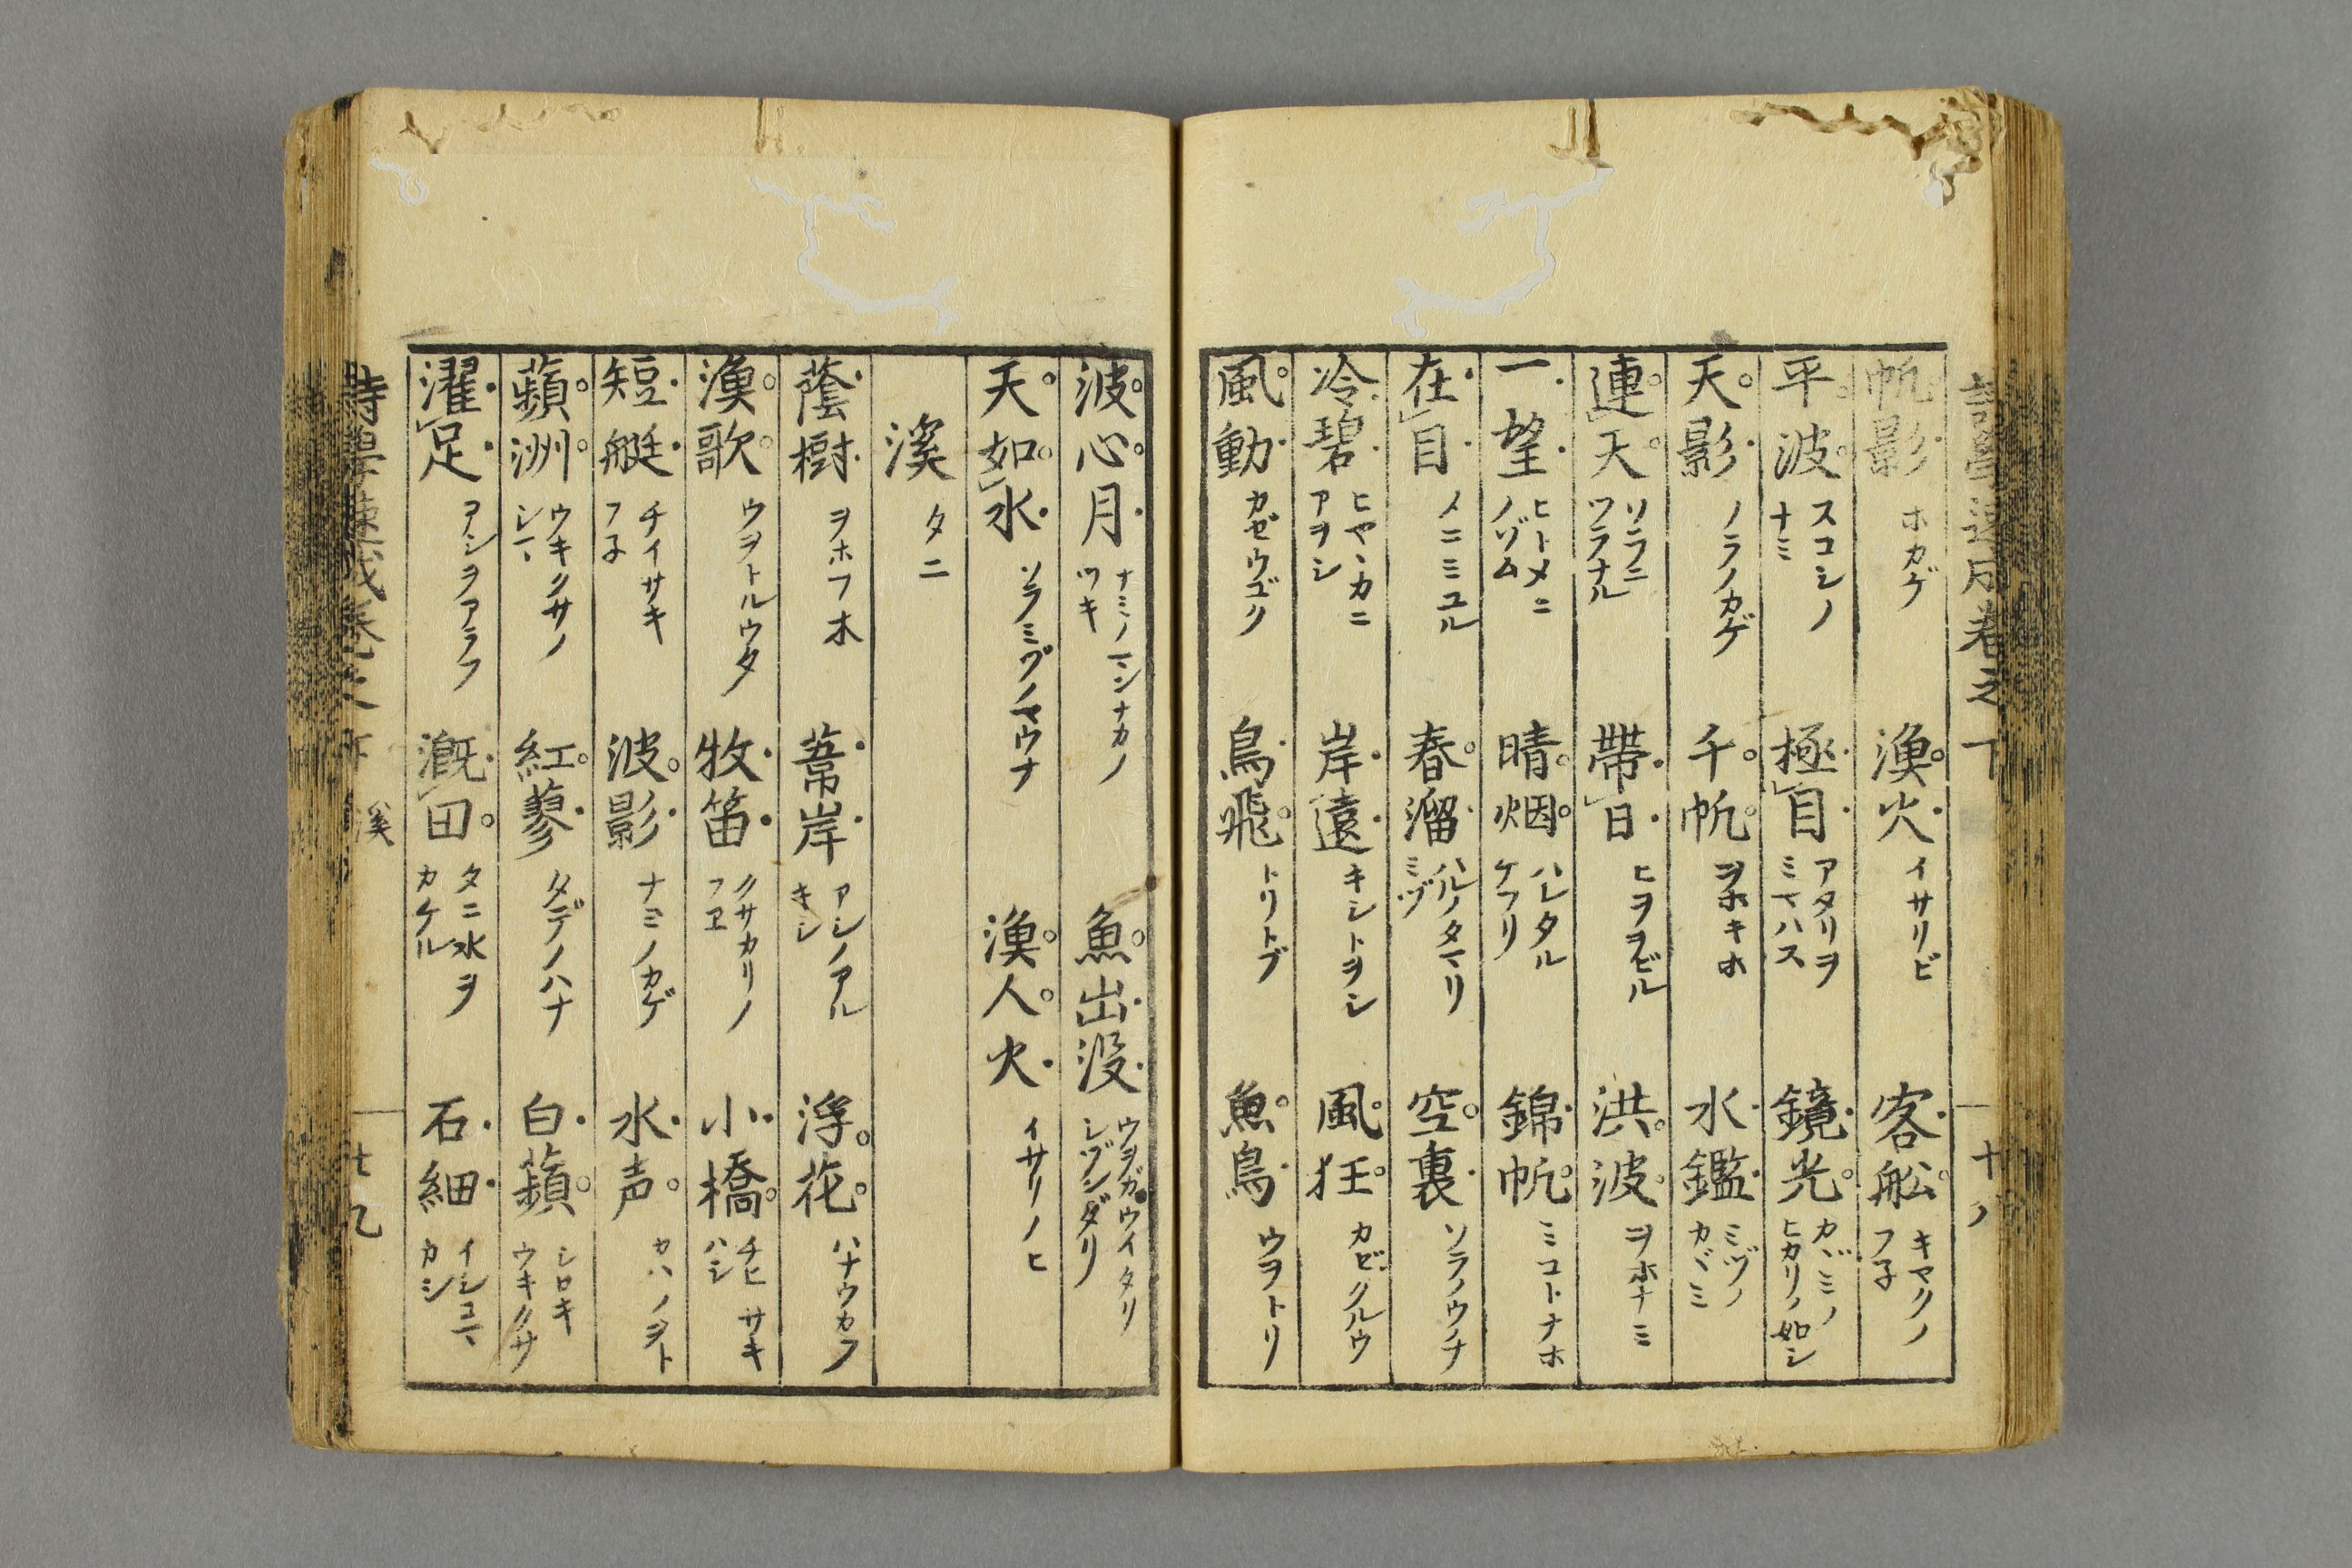 帆影 ホカゲ 漁火 イサリビ 客舩 キヤクノフ子
平波 スコシノナミ 極目 アタリヲミマハス 鏡光 カヾミノヒカリノ如シ
天影 ソラノカゲ 千帆 ヲホキホ 水鑑 ミヅノカヾミ
連天 ソラニツラナル 帶日 ヒヲヲビル 洪波 ヲホナミ
一望 ヒトメニノゾム 晴烟 ハレタルケフリ 錦帆 ミコトナホ
在目 メニミユル 春溜 ハルノタマリミヅ 空裏 ソラノウチ
冷碧 ヒヤヽカニアヲシ 岸遠 キシトヲシ 風狂 カゼクルウ
風動 カゼウゴク 鳥飛 トリトブ 魚鳥 ウヲトリ
波心月 ナミノマンナカノツキ 魚出没 ウヲガウイタリシヅンダリ
天如水 ソラミヅノヤウナ 漁人火 イサリノヒ
溪 タニ
蔭樹 ヲホフ木 葦岸 アシノアルキシ 浮花 ハナウカフ
漁歌 ウヲトルウタ 牧笛 クサカリノフヱ 小橋 チヒサキハシ
短艇 チイサキフ子 波影 ナミノカゲ 水声 カハノヲト
蘋洲 ウキクサノシマ 紅蓼 タデノハナ 白蘋 シロキウキクサ
濯足 アシヲアラフ 漑田 タニ水ヲカケル 石細 イシコマカシ
詩學速成卷之下 溪 十九